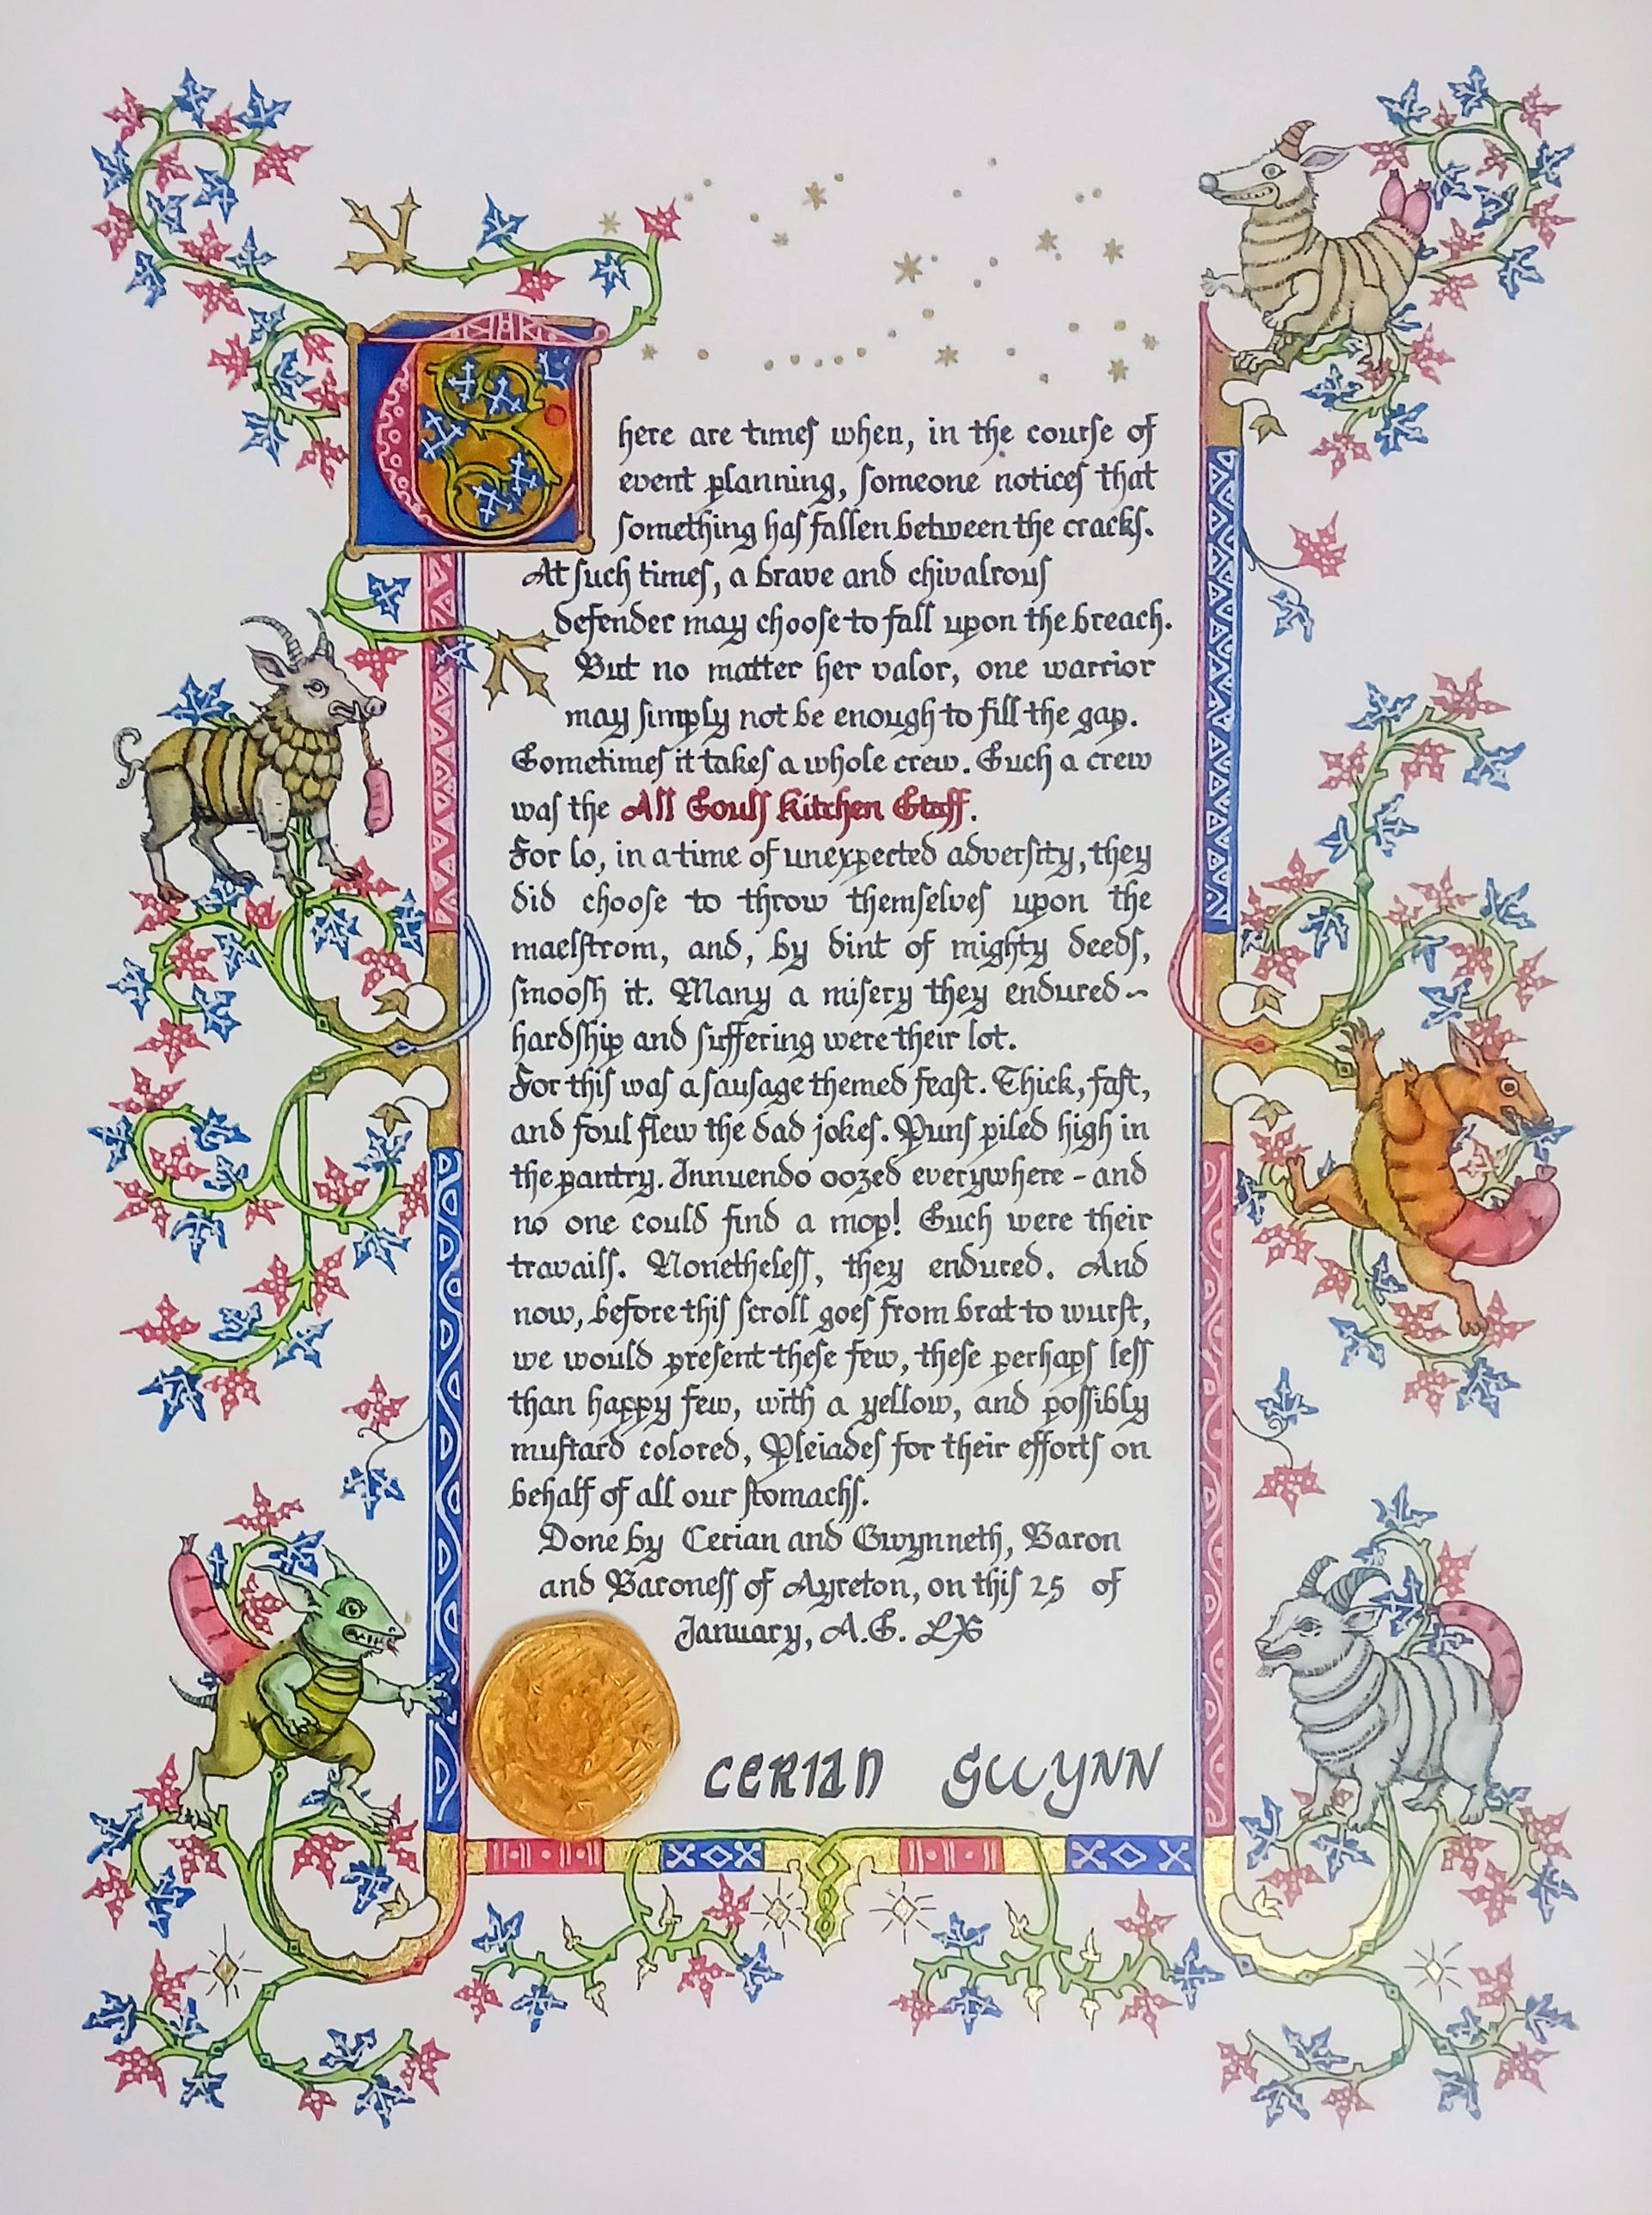 There are times when, in the course of
event planning, someone notices that
something has fallen between the cracks.
At such times, a brave and chivalrous
defender may choose to fall upon the breach.
But no matter her valor, one warrior
may simply not be enough to fill the gap.
Sometimes it takes a whole crew. Such a crew
was the All Souls Kitchen Staff.
For lo, in a time of unexpected adversity, they
did choose to throw themselves upon the
maelstrom, and, by dint of mighty deeds,
smoosh it. Many a misery they endured ~
hardship and suffering were their lot.
For this was a sausage themed feast. Thick, fast,
and foul flew the dad jokes. Puns piled high in
the pantry. Innuendo oozed everywhere - and
no one could find a mop! Such were their
travails. Nonetheless, they endured. And
now, before this scroll goes from brat to wurst,
we would present these few, these perhaps less
than happy few, with a yellow, and possibly
mustard colored, Pleiades for their efforts on
behalf of all our stomachs.
Done by Cerian and Gwynneth, Baron
and Baroness of Ayreton, on this 25 of
January, A.S. LX
CERIAN GWYNN